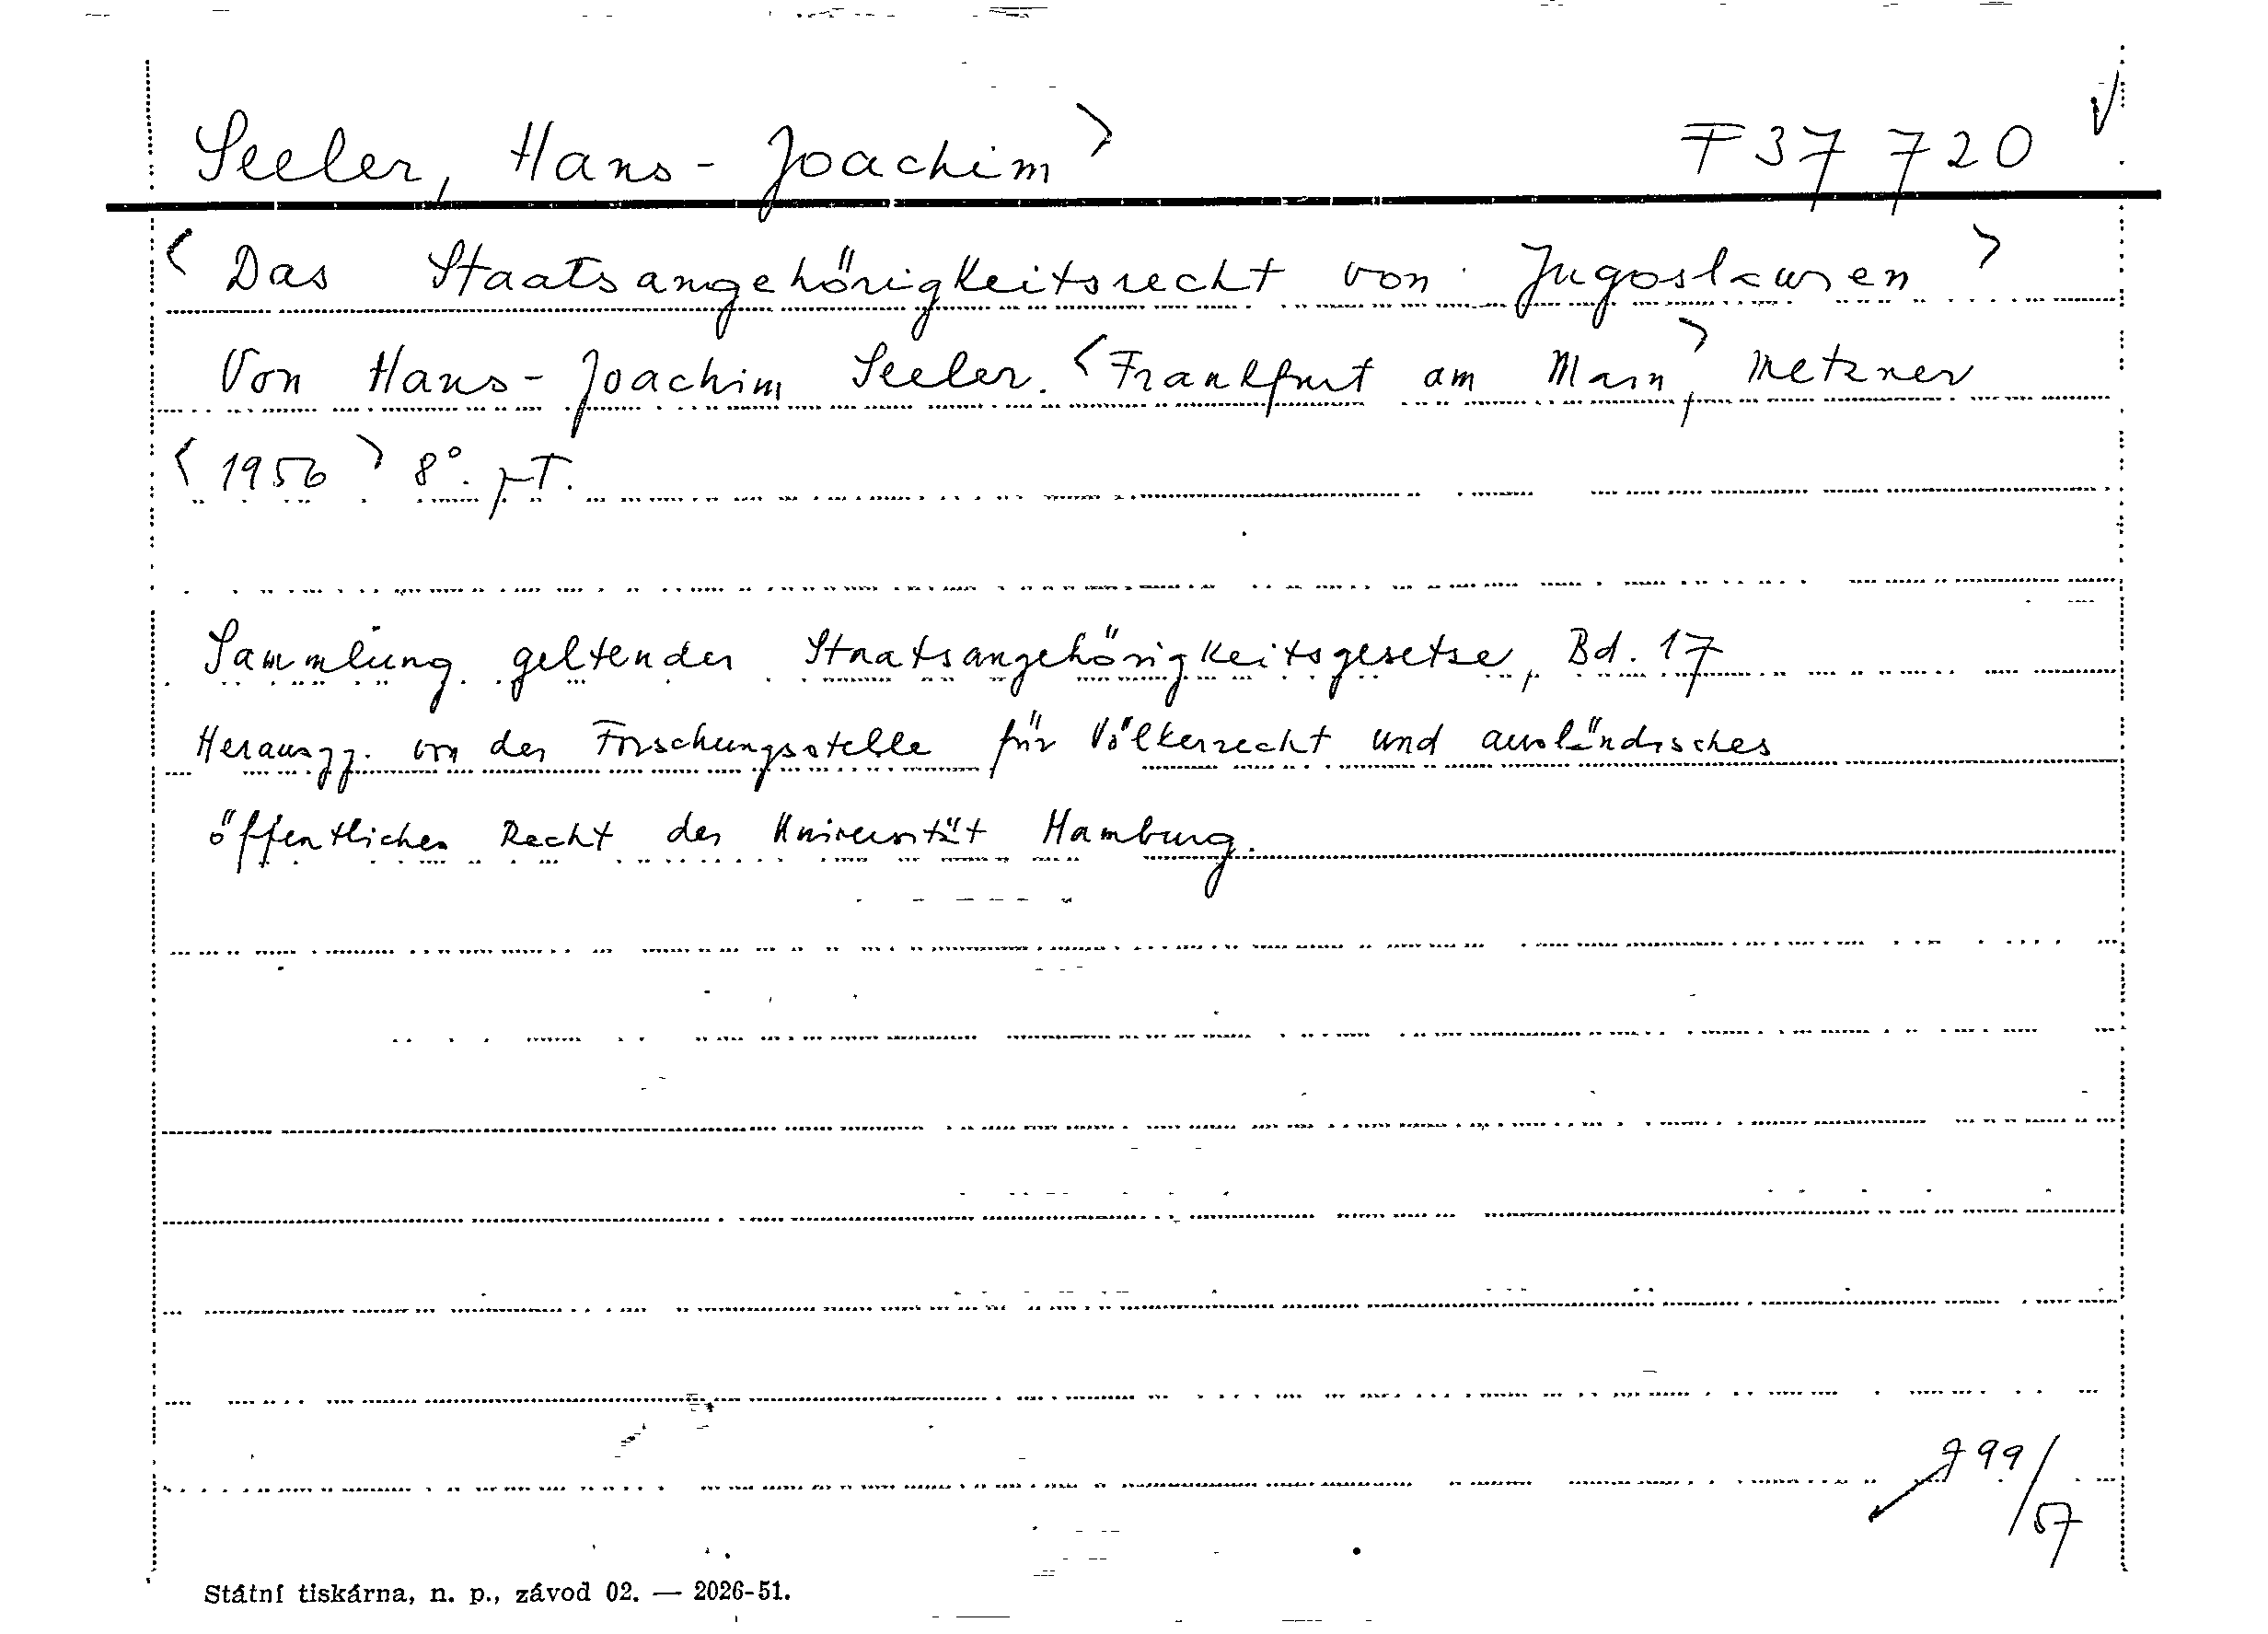 Seeler, Hans-Joachim> F 37 720 √
<Das Staatsangehörigkeitsrecht von Jugoslawien>
Von Hans-Joachim Seeler. <Frankfurt am Main>, Metzner
<1956> 8°.
Sammlung geltender Staatsangehörigkeitsgesetze, Bd. 17
Herausgg. von der Forschungsstelle für Völkerrecht und ausländisches
öffentliches Recht der Universität Hamburg.
799/57
Státní tiskárna, n. p., závod 02. — 2026-51.